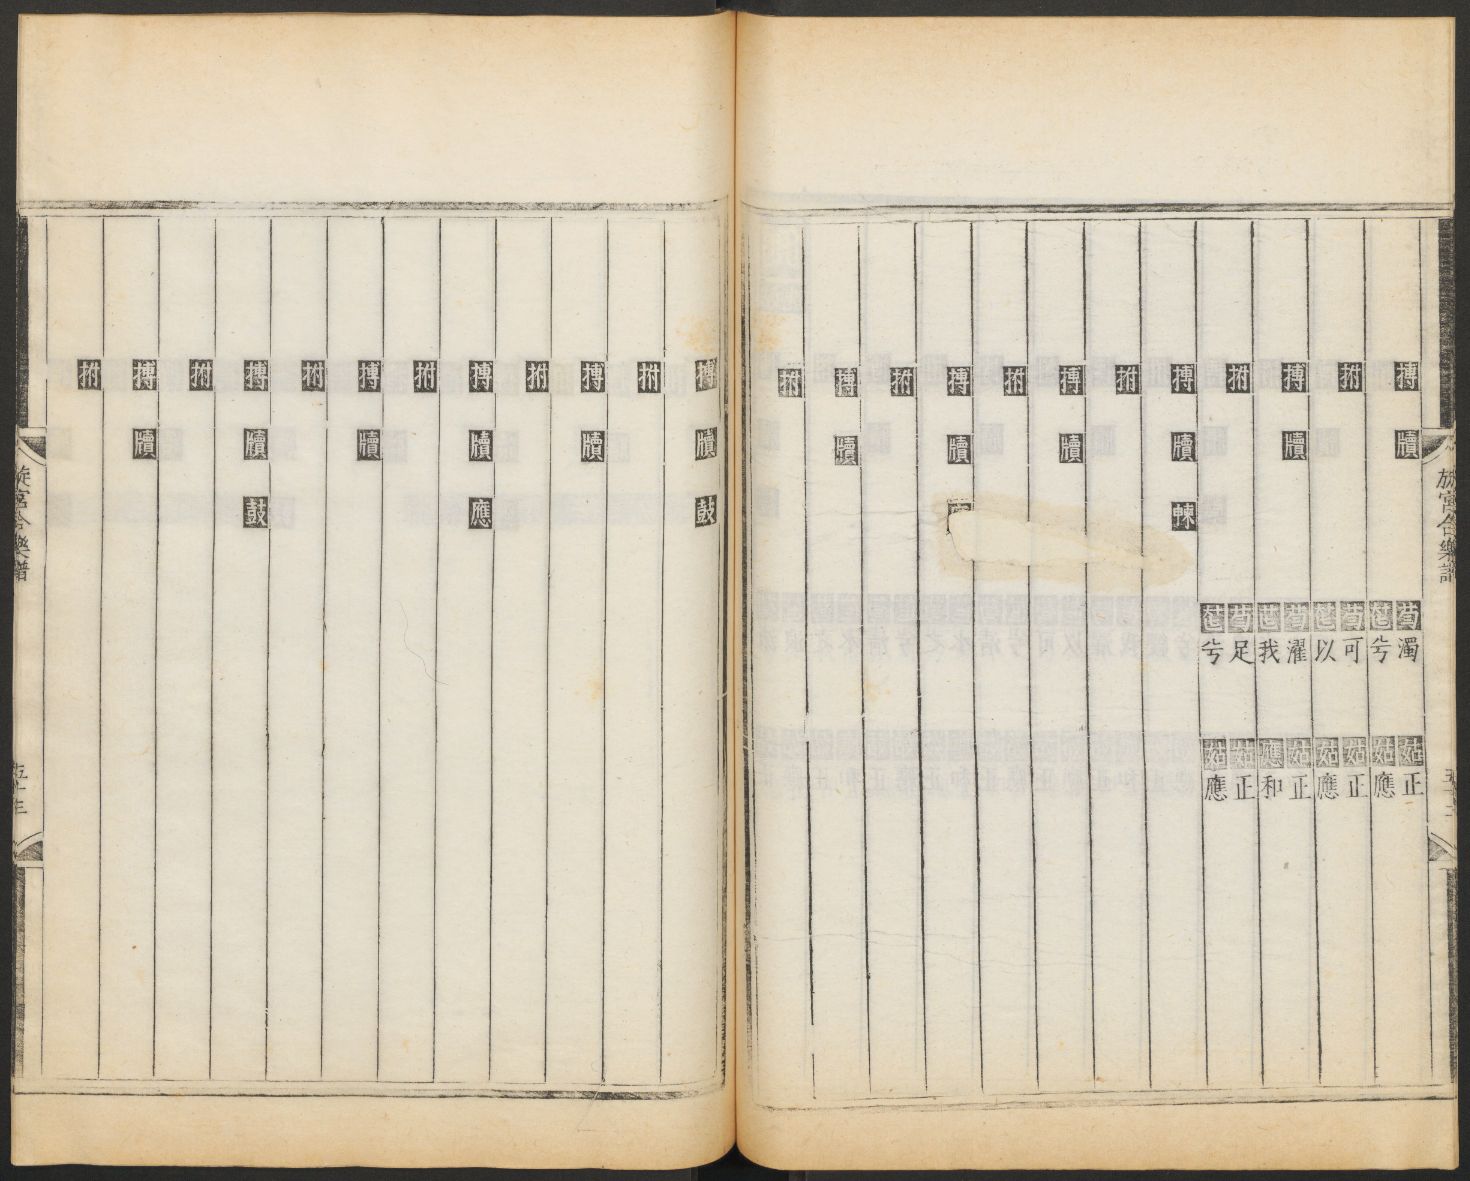 旋宮合樂譜
搏 牘 濁 姑 正
兮 姑 應
拊 可 姑 正
以 姑 應
搏 牘 濯 姑 正
我 應 和
拊 足 姑 正
兮 姑 應
搏 牘 朄
拊
搏 牘
拊
搏 牘
拊
搏 牘
拊
搏 牘 鼓
拊
搏 牘
拊
搏 牘 應
拊
搏 牘
拊
搏 牘 鼓
拊
搏 牘
拊
旋宮合樂譜